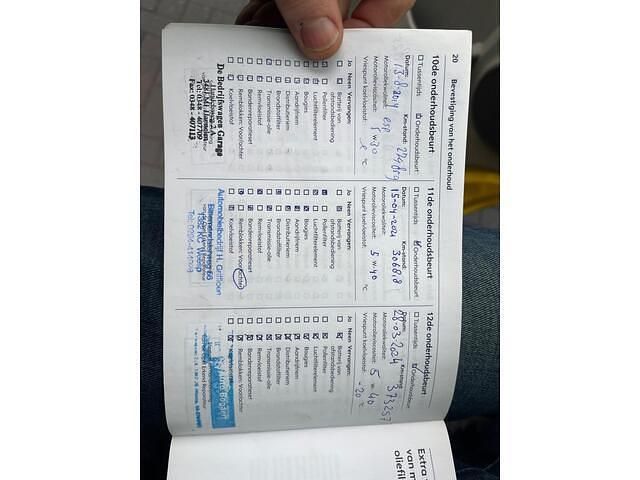 20 Bevestiging van het onderhoud
10de onderhoudsbeurt
Tussentijds Onderhoudsbeurt
Datum: Km-stand:
Motoroliekwaliteit: esp
Motorolieviscositeit: 5 w 30
Vriespunt koelvloeistof: °C
Ja Neen Vervangen:
Batterij van
afstandsbediening
Pollenfilter
Luchtfilterelement
Bougies
Aandrijfriem
Distributieriem
Brandstoffilter
Transmissie-olie
Remvloeistof
Bandenreparatieset
Remblokken: Voor/achter
Koelvloeistof
De Bedrijfswagen Garage
Tel: 0348 - 407709
Fax: 0348 - 407113
11de onderhoudsbeurt
Tussentijds Onderhoudsbeurt
Datum: Km-stand:
15-04-2021 306818
Motoroliekwaliteit:
Motorolieviscositeit: 5 w 40
Vriespunt koelvloeistof: °C
Ja Neen Vervangen:
Batterij van
afstandsbediening
Pollenfilter
Luchtfilterelement
Bougies
Aandrijfriem
Distributieriem
Brandstoffilter
Transmissie-olie
Remvloeistof
Bandenreparatieset
Remblokken: Voor/achter
Koelvloeistof
Automobielbedrijf H. Griffioen
12de onderhoudsbeurt
Tussentijds Onderhoudsbeurt
Datum: Km-stand:
28-03-2024 373257
Motoroliekwaliteit:
Motorolieviscositeit: 5 w 40
Vriespunt koelvloeistof: -20 °C
Ja Neen Vervangen:
Batterij van
afstandsbediening
Pollenfilter
Luchtfilterelement
Bougies
Aandrijfriem
Distributieriem
Brandstoffilter
Transmissie-olie
Remvloeistof
Bandenreparatieset
Remblokken: Voor/achter
Extra
van m
oliefil